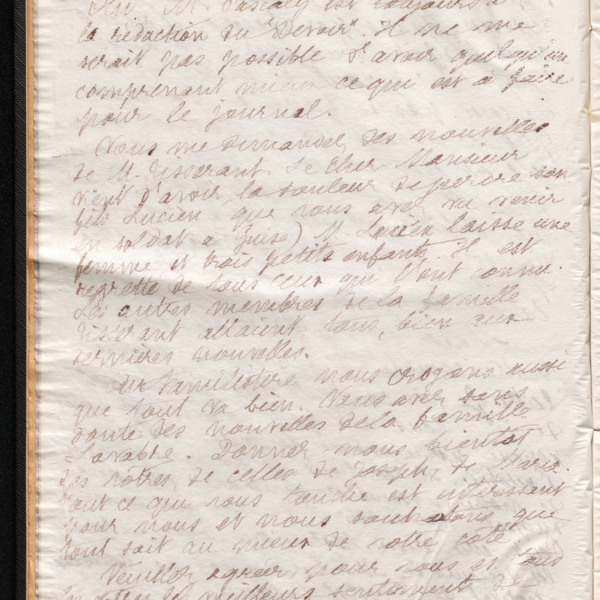 Oui M. Pascaly est toujours à
la rédaction du "Devoir". Il ne me
serait pas possible d'avoir quelqu'un
comprenant mieux ce qui est à faire
pour le journal.
Vous me demandez des nouvelles
de M. Tisserant. Le cher Monsieur
vient d'avoir la douleur de perdre son
fils Lucien que vous avez vu venir
en soldat à Guise) M. Lucien laisse une
femme et trois petits enfants. Il est
regretté de tous ceux qui l'ont connu.
Les autres membres de la famille
Tisserant allaient tous, bien aux
dernières nouvelles.
Au familistère nous croyons aussi
que tout va bien. Vous avez sans
doute des nouvelles de la famille
Donnez nous bientôt
des vôtres de celles de Joseph, de Marie.
Tout ce qui vous touche est intéressant
pour nous et nous souhaitons que
tout soit au mieux de votre côté.
Veuillez agréer pour vous et tous
les meilleurs sentiments de